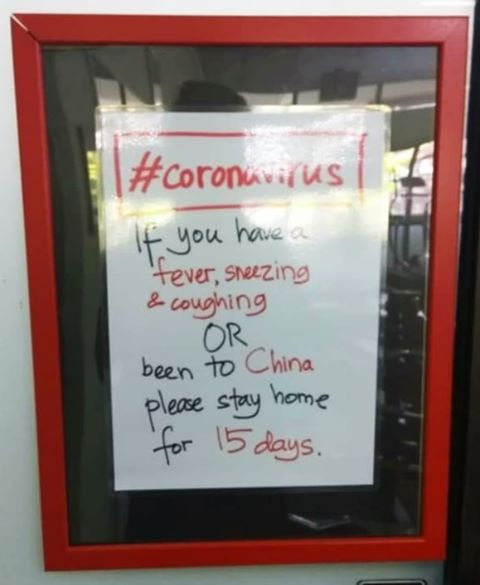 #coronavirus
If you have a
fever, sneezing
& coughing
OR
been to China
please stay home
for 15 days.